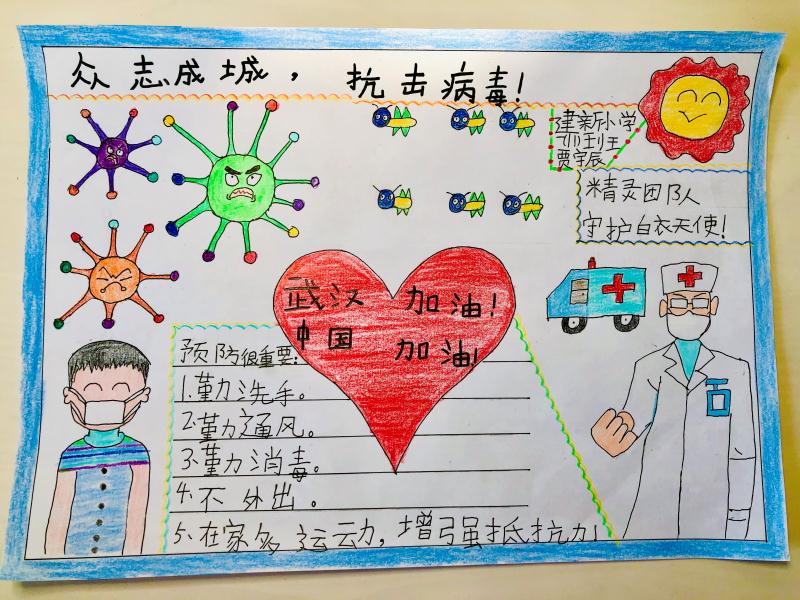 众志成城，抗击病毒！
建新小学
贾宇辰
精灵团队
守护白衣天使！
武汉 加油！
中国 加油！
预防很重要：
1.勤洗手。
2.勤通风。
3.勤消毒。
4.不外出。
5、在家多运动，增强抵抗力！